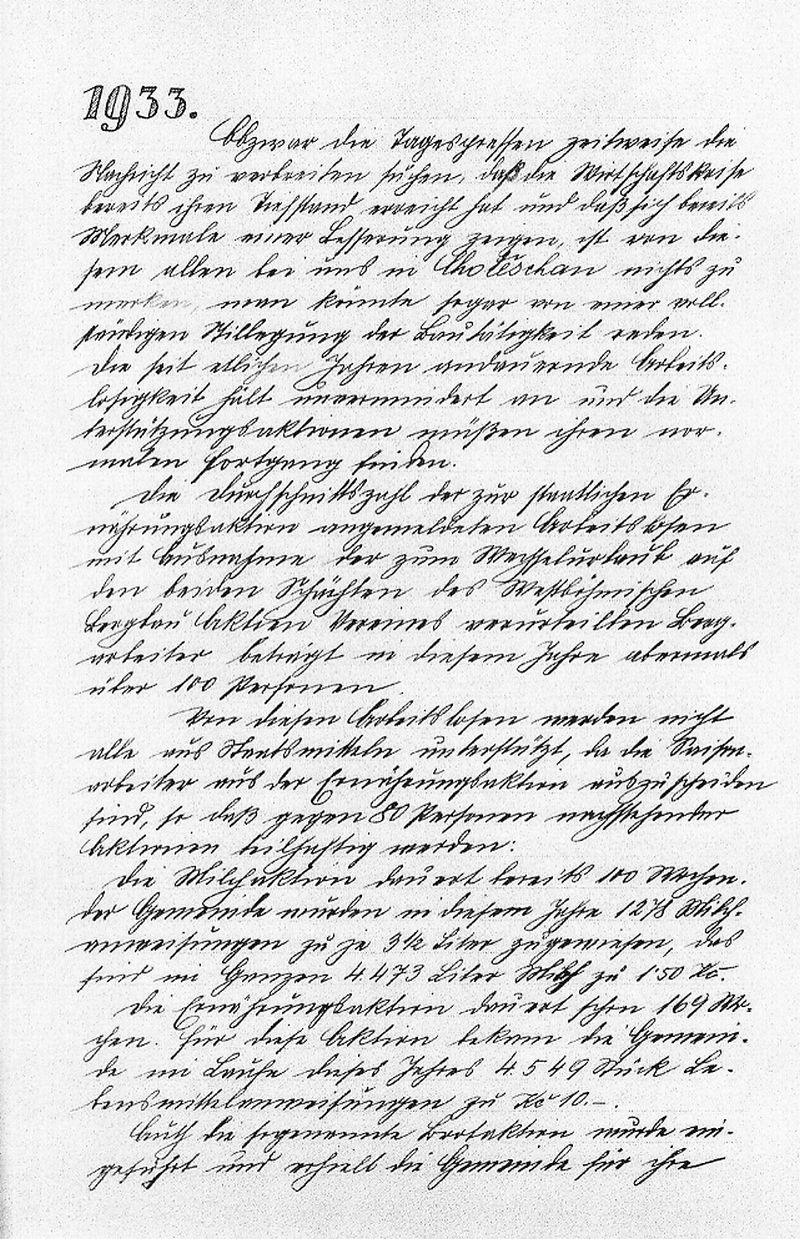 1933.
Obzwar die Tagespressen zeitweise die
Nachricht zu verbreiten suchen, daß die Wirtschaftskrise
bereits ihren Tiefstand erreicht hat und daß sich bereits
Merkmale einer Besserung zeigen, ist von die-
sem allen bei uns in Chotěschau nichts zu
merken, man könnte sogar von einer voll-
ständigen Stillegung der Bautätigkeit reden.
Die seit etlichen Jahren andauernde Arbeits-
losigkeit hält unvermindert an und die Un-
terstützungsaktionen müßen ihren nor-
malen Fortgang finden.
Die Durchschnittszahl der zur staatlichen Er-
nährungsaktion angemeldeten Arbeitslosen
mit Ausnahme der zum Wechselurlaub auf
den beiden Schächten des Westböhmischen
Bergbau Aktien Vereines verurteilten Berg-
arbeiter beträgt in diesem Jahre abermals
über 100 Personen.
Von diesen Arbeitslosen werden nicht
alle aus Staatsmitteln unterstützt, da die Saison-
arbeiter aus der Ernährungsaktion auszuscheiden
sind, so daß gegen 80 Personen nachstehender
Aktionen teilhaftig werden:
Die Milchaktion dauert bereits 100 Wochen.
Der Gemeinde wurden in diesem Jahre 1278 Milch-
anweisungen zu je 3½ Liter zugewiesen, das
sind im Ganzen 4.473 Liter Milch zu 1·50 Kč.
Die Ernährungsaktion dauert schon 169 Wo-
chen. Für diese Aktion bekam die Gemein-
de im Laufe dieses Jahres 4.549 Stück Le-
bensmittelanweisungen zu Kč 10.–.
Auch die sogenannte Brotaktion wurde ein-
geführt und erhielt die Gemeinde für ihre